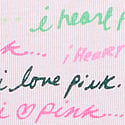 i heart p
k.... i HEART
i love pink.
i ♡ pink....